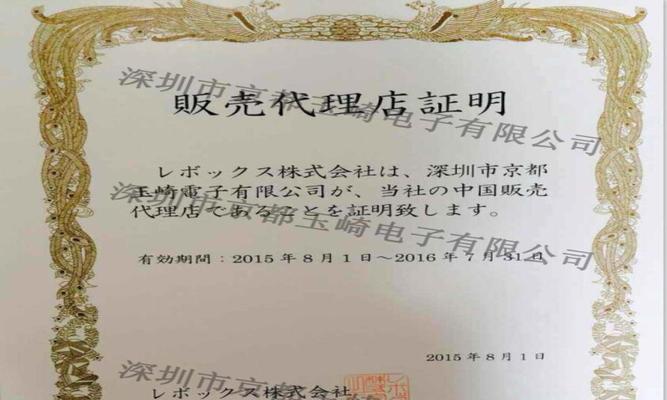 販売代理店証明
レボックス株式会社は、深圳市京都
玉崎電子有限公司が、当社の中国販売
代理店であることを証明致します。
有効期間：2015年8月1日～2016年7月31日
2015年8月1日
レボックス株式会社
深圳市京都玉崎电子有限公司
深圳市京都玉崎电子有限公司
深圳市京